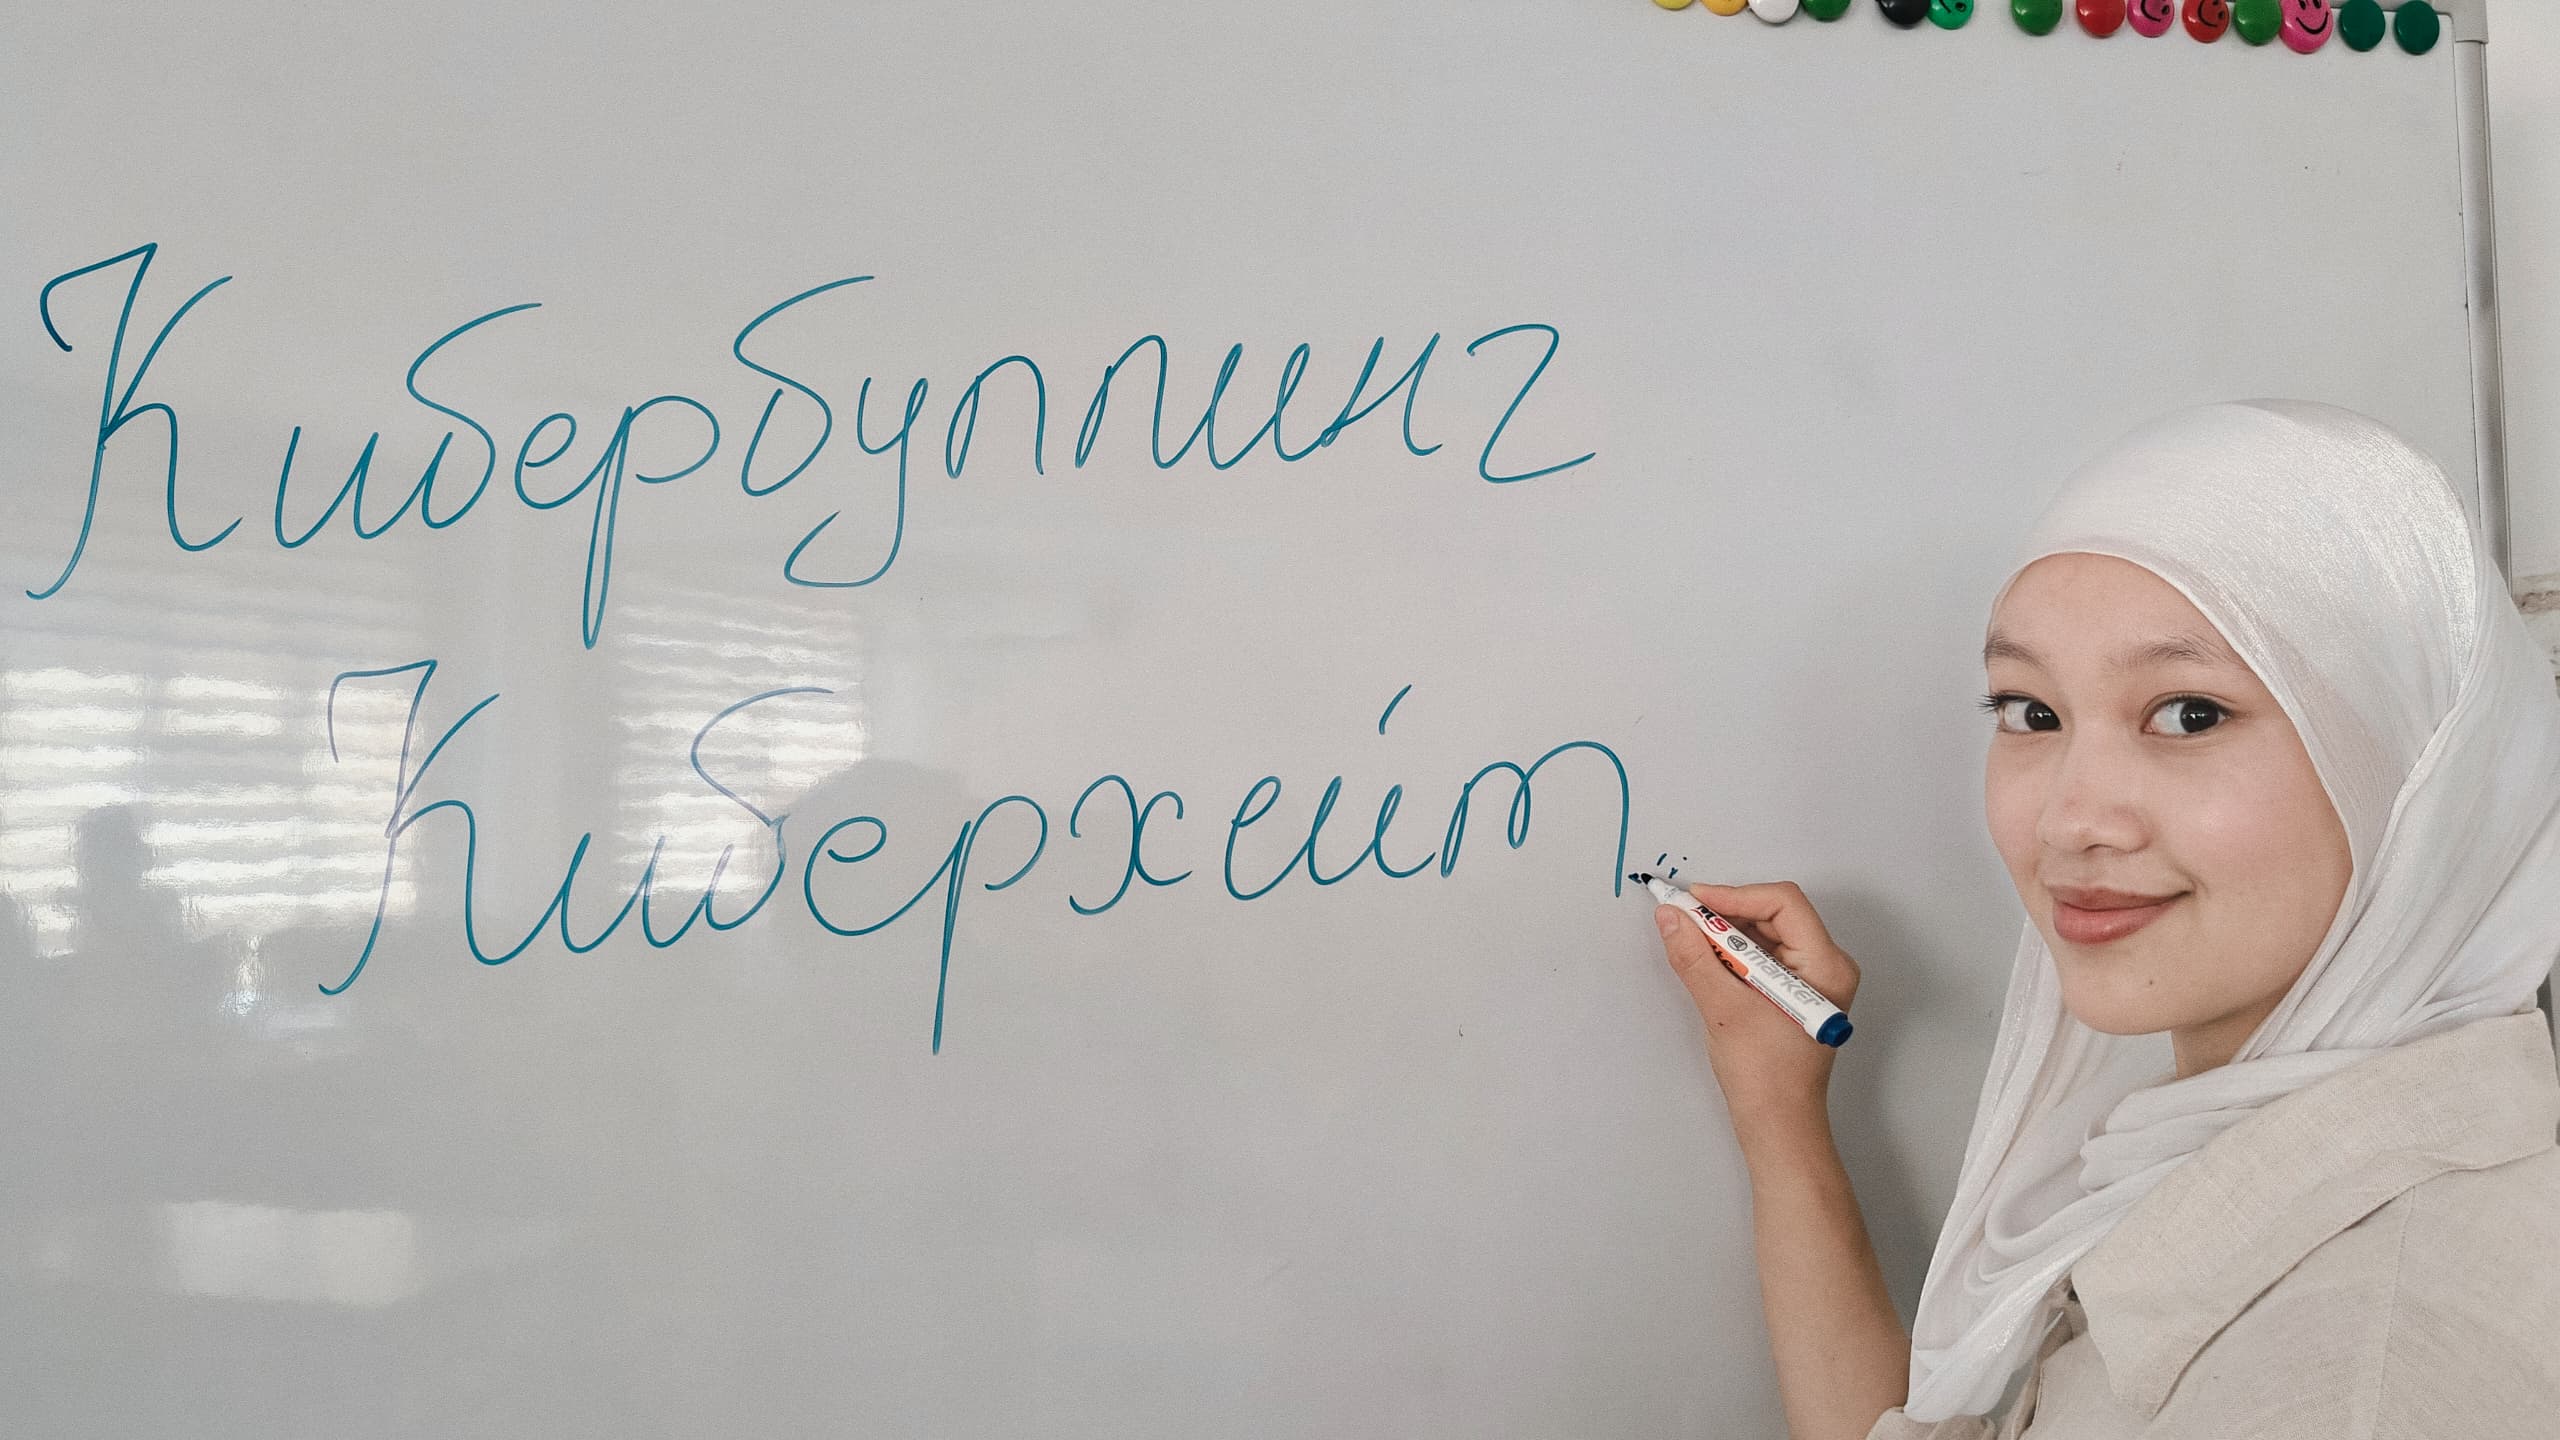 Кибербуллинг
Киберхейт
MS
marker